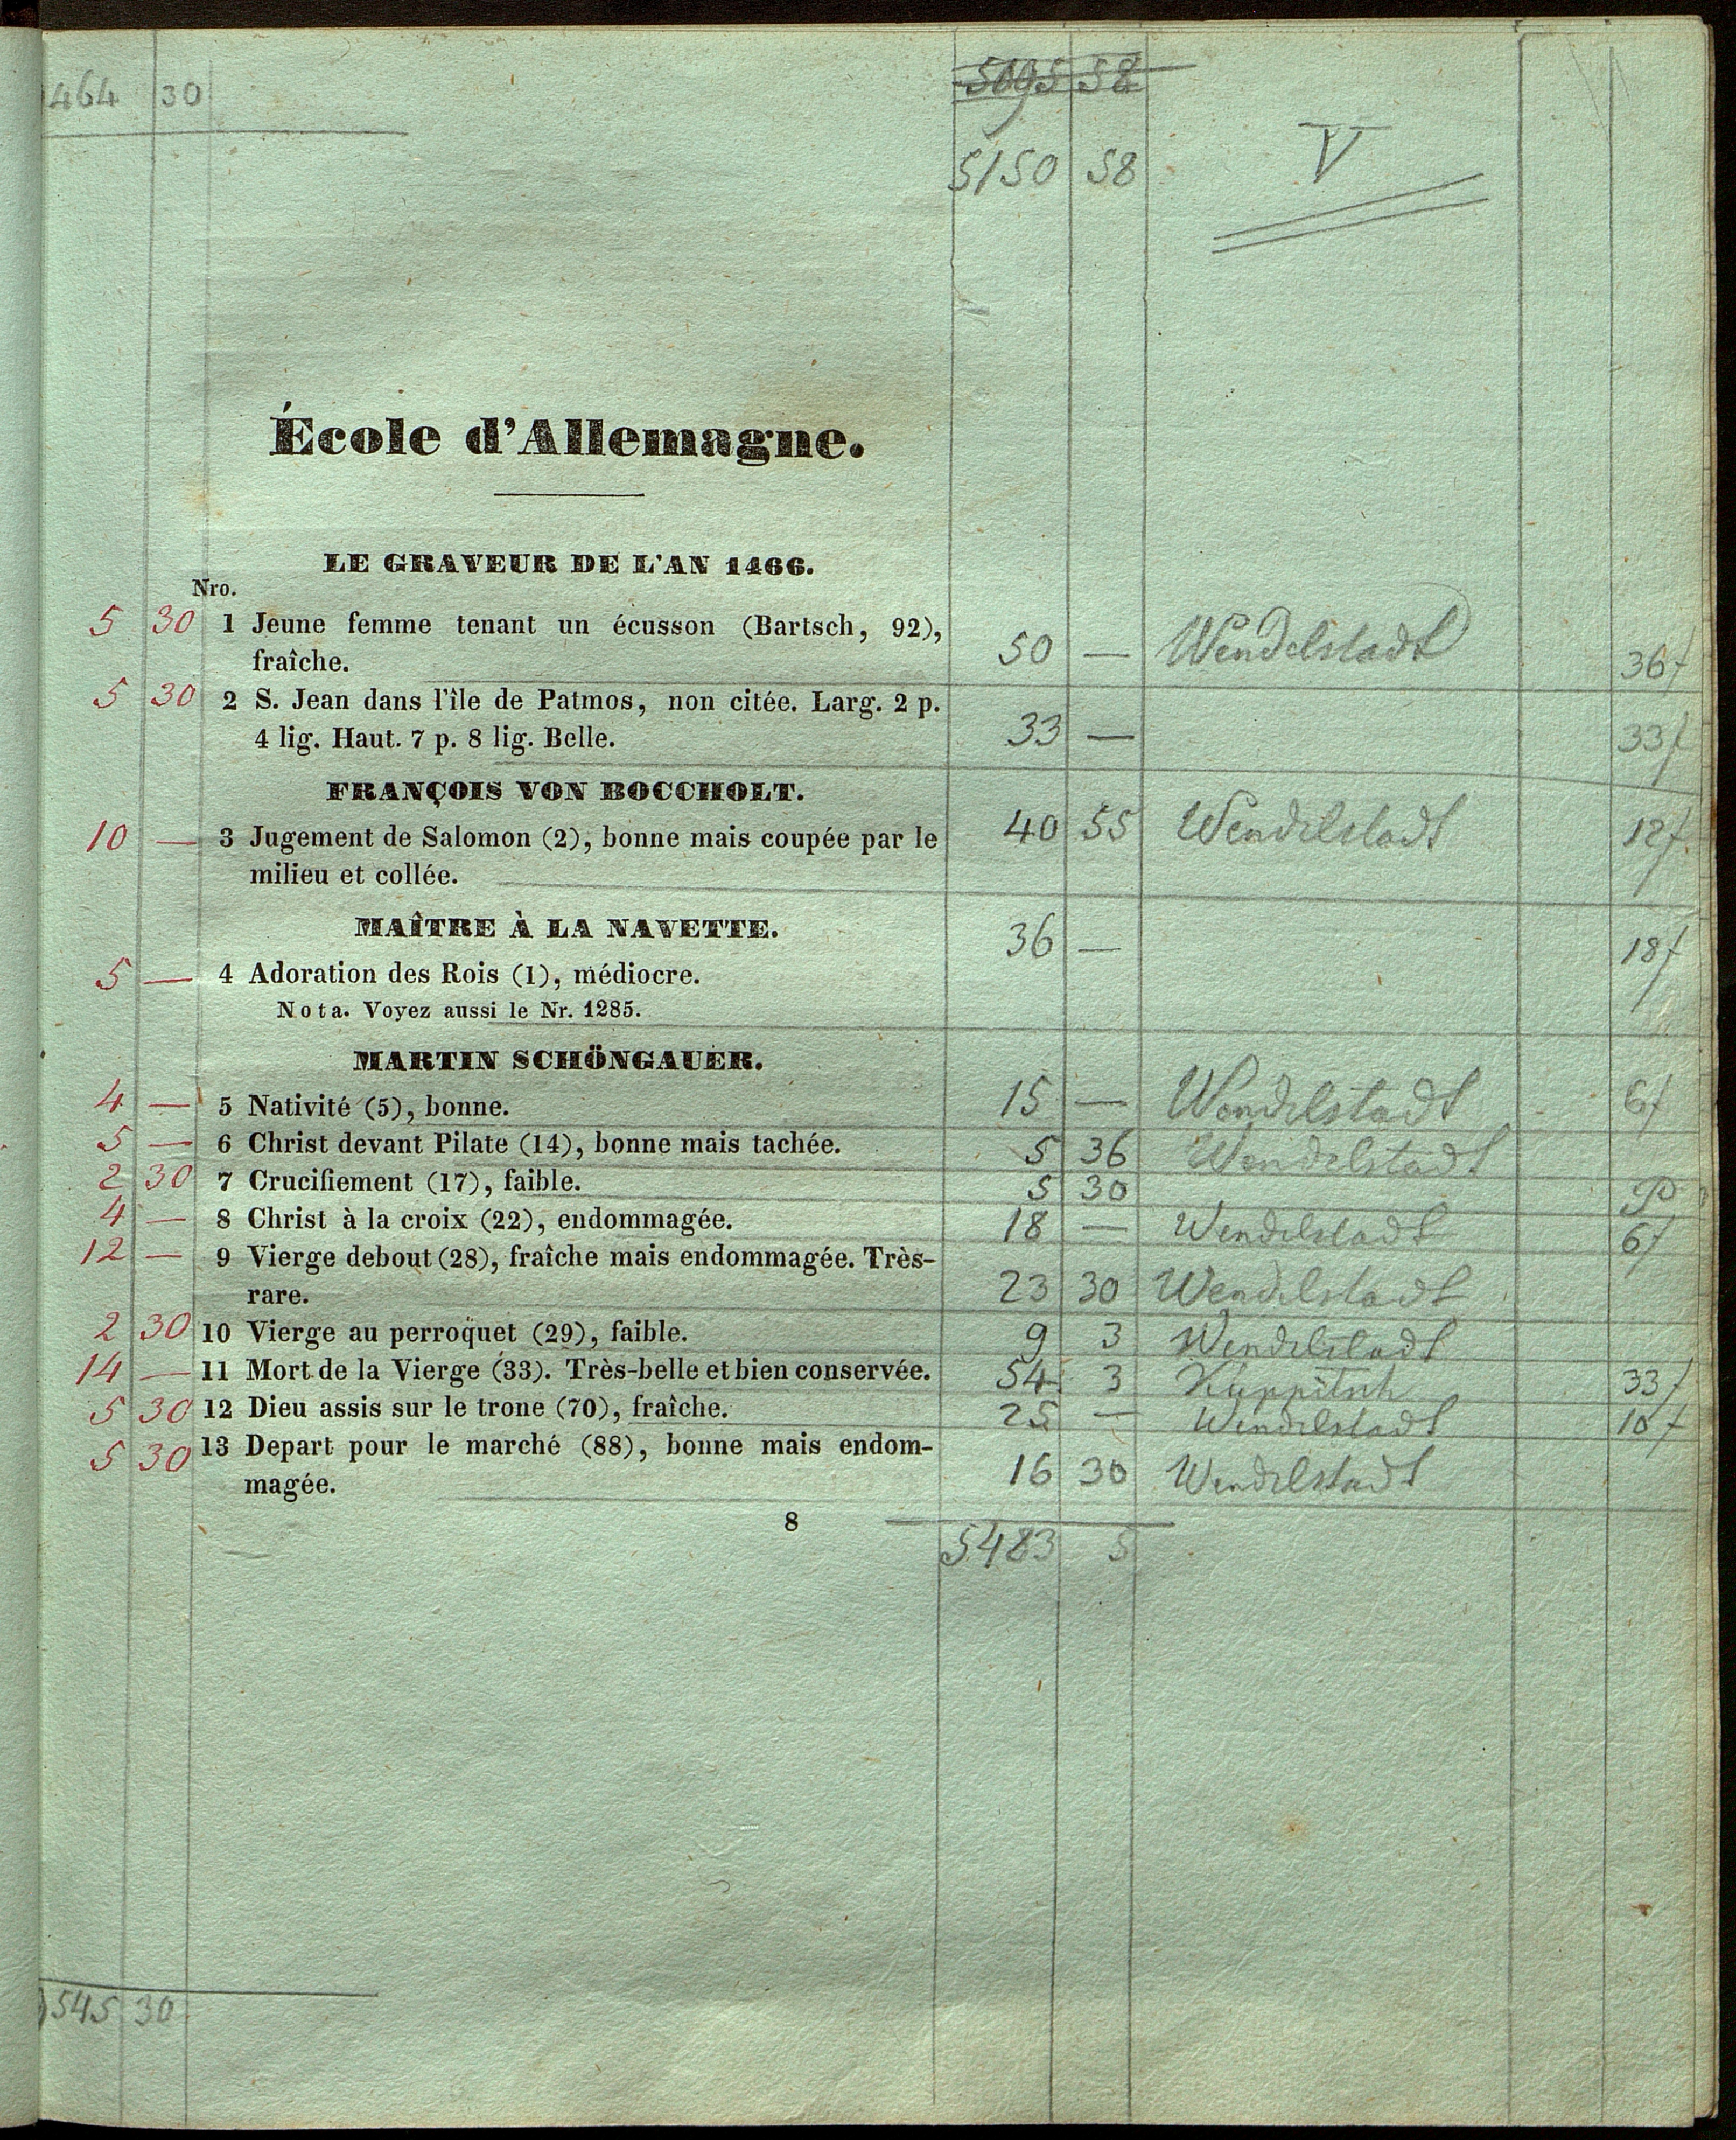 464 30 5095 58
5150 58 V
École d'Allemagne.
LE GRAVEUR DE L'AN 1466.
Nro.
5 30 1 Jeune femme tenant un écusson (Bartsch, 92), 50 — Wendelstadt 36f
fraîche.
5 30 2 S. Jean dans l'île de Patmos, non citée. Larg. 2 p. 33 — 33f
4 lig. Haut. 7 p. 8 lig. Belle.
FRANÇOIS VON BOCCHOLT.
10 — 3 Jugement de Salomon (2), bonne mais coupée par le 40 55 Wendelstadt 12f
milieu et collée.
MAÎTRE À LA NAVETTE. 36 — 18f
5 — 4 Adoration des Rois (1), médiocre.
Nota. Voyez aussi le Nr. 1285.
MARTIN SCHÖNGAUER.
4 — 5 Nativité (5), bonne. 15 — Wendelstadt 6f
5 — 6 Christ devant Pilate (14), bonne mais tachée. 5 36 Wendelstadt
2 30 7 Crucifiement (17), faible. 5 30
4 — 8 Christ à la croix (22), endommagée. 18 — Wendelstadt 6f
12 — 9 Vierge debout (28), fraîche mais endommagée. Très-
rare. 23 30 Wendelstadt
2 30 10 Vierge au perroquet (29), faible. 9 3 Wendelstadt
14 — 11 Mort de la Vierge (33). Très-belle et bien conservée. 54 3 Kuppitsch 33f
5 30 12 Dieu assis sur le trone (70), fraîche. 25 — Wendelstadt 10f
5 30 13 Depart pour le marché (88), bonne mais endom-
magée. 16 30 Wendelstadt
8
5483 5
545 30